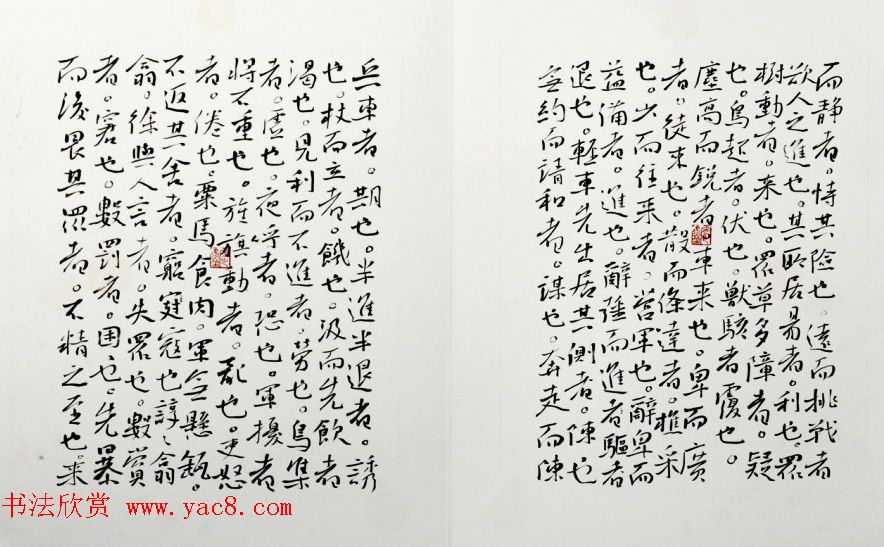 而静者。恃其险也。遠而挑战者
欲人之進也。其所居易者。利也。眾
樹動者。来也。眾草多障者。疑
也。鳥起者。伏也。獸駭者覆也。
塵高而鋭者車来也。卑而廣
者。徒来也。散而條達者。樵采
也。少而往来者。营軍也。辭卑而
益備者。進也。辭强而進者驅者
退也。輕車先出居其側者。陳也
無約而請和者。謀也。奔走而陳
兵車者。期也。半進半退者。誘
也。杖而立者。饑也。汲而先飲者
渴也。見利而不進者。劳也。鳥集
者。虛也。夜呼者。恐也。軍擾者
將不重也。旌旗動者。亂也。吏怒
者。倦也。粟馬食肉。軍無懸缻。
不返其舍者。窮寇也諄諄翕
翕。徐與人言者。失眾也。數賞
者。窘也。數罰者。困也。先暴
而後畏其眾者。不精之至也。来
书法欣赏 www.yac8.com